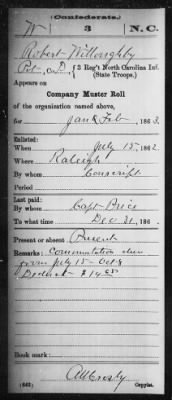 (Confederate.)
W 3 N.C.
Robert Willoughby
Pvt, Co. D, 3 Reg't North Carolina Inf.
(State Troops.)
Appears on
Company Muster Roll
of the organization named above,
for Jan & Feb, 1863.
Enlisted:
When July 15, 1862
Where Raleigh
By whom Conscript
Period
Last paid:
By whom Capt Price
To what time Dec 31, 186 .
Present or absent Present
Remarks: Commutation due
from July 15 - Oct 8
Deduct $14
Book mark:
Copyist.